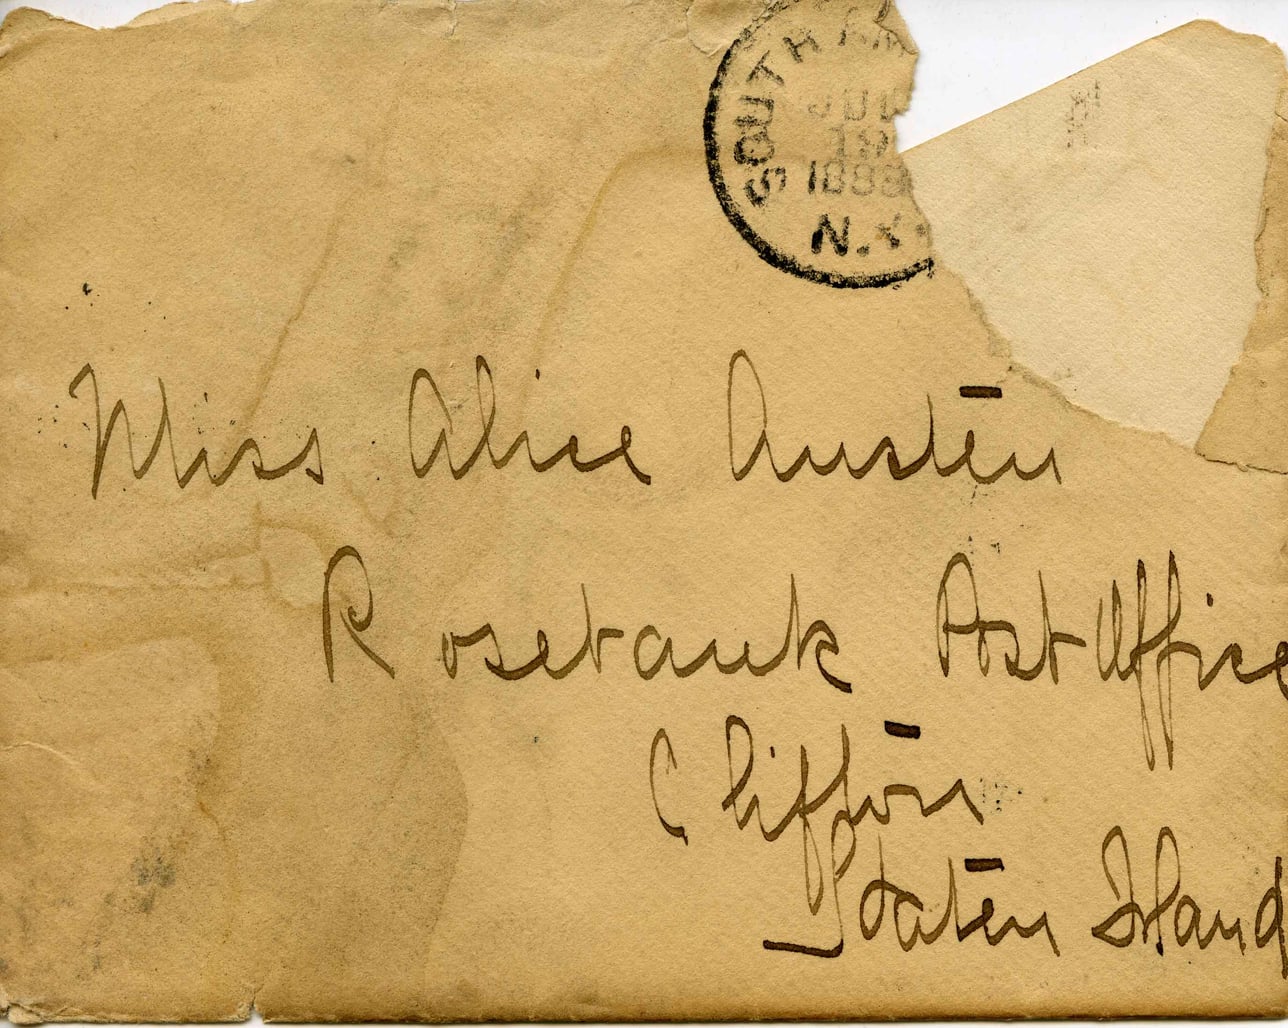 SOUTH
19
1888
N.Y.
Miss Alice Austen
Rosebank Post Office
Clifton
Staten Island